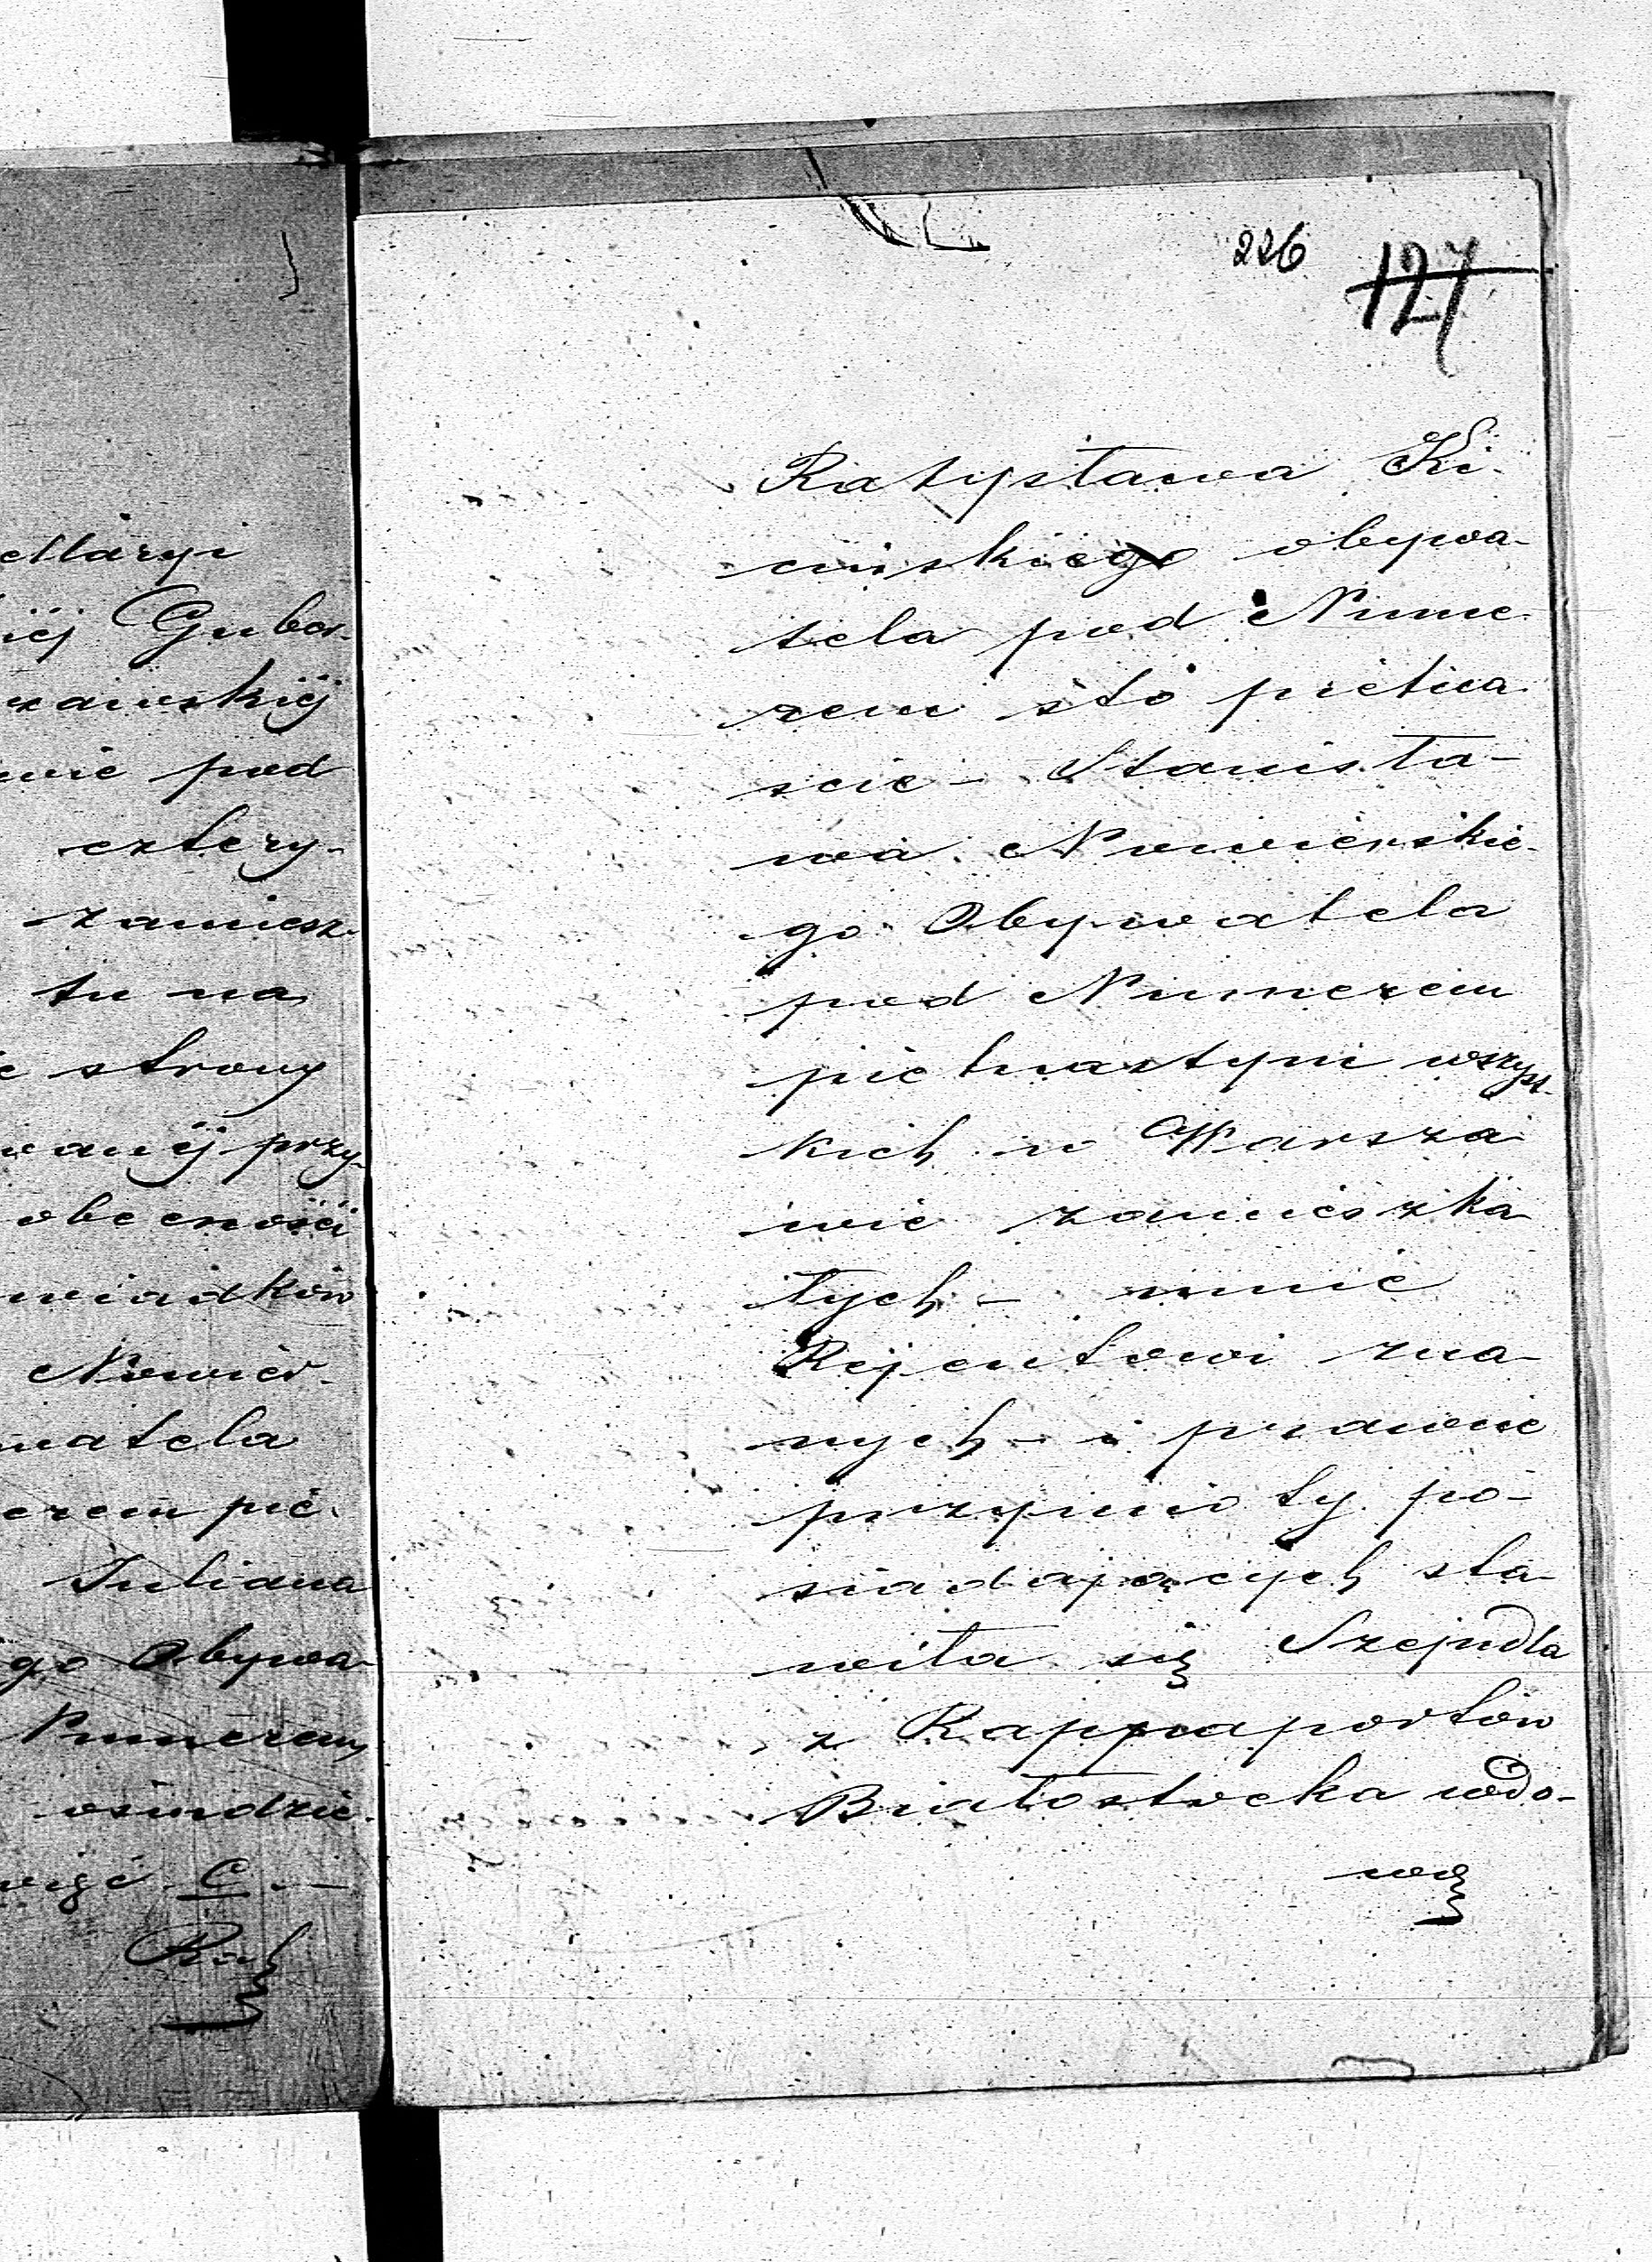 ellaryi
iéj Guber-
szawskiéj
wie pod
cztery-
zamiesz-
tu na
e strony
wanéj przy-
obecności
świadków
Nowier-
watela
erem pię-
Juliana
go Obywa-
Numerem
osindzie-
więć C.—
Ra
226
127
Ratysława Ki-
cińskiego obywa-
tela pod Nume-
rem sto piętna-
scie – Stanisła-
wa Nowierskie-
go Obywatela
pod Numerem
piętnastym wszyst-
kich w Warsza-
wie zamieszka-
łych – mnie
Rejentowi zna-
nych – i prawne
przymioty po-
siadających sta-
wiła się Szejndla
z Rappaportów
Białostocka wdo-
wa